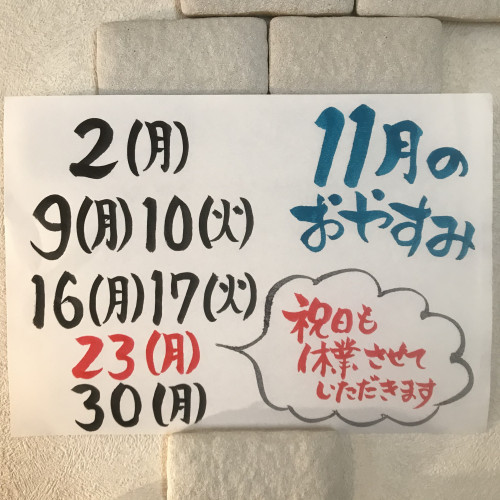 11月の
おやすみ
2(月)
9(月)10(火)
16(月)17(火)
23(月)
30(月)
祝日も
休業させて
いただきます